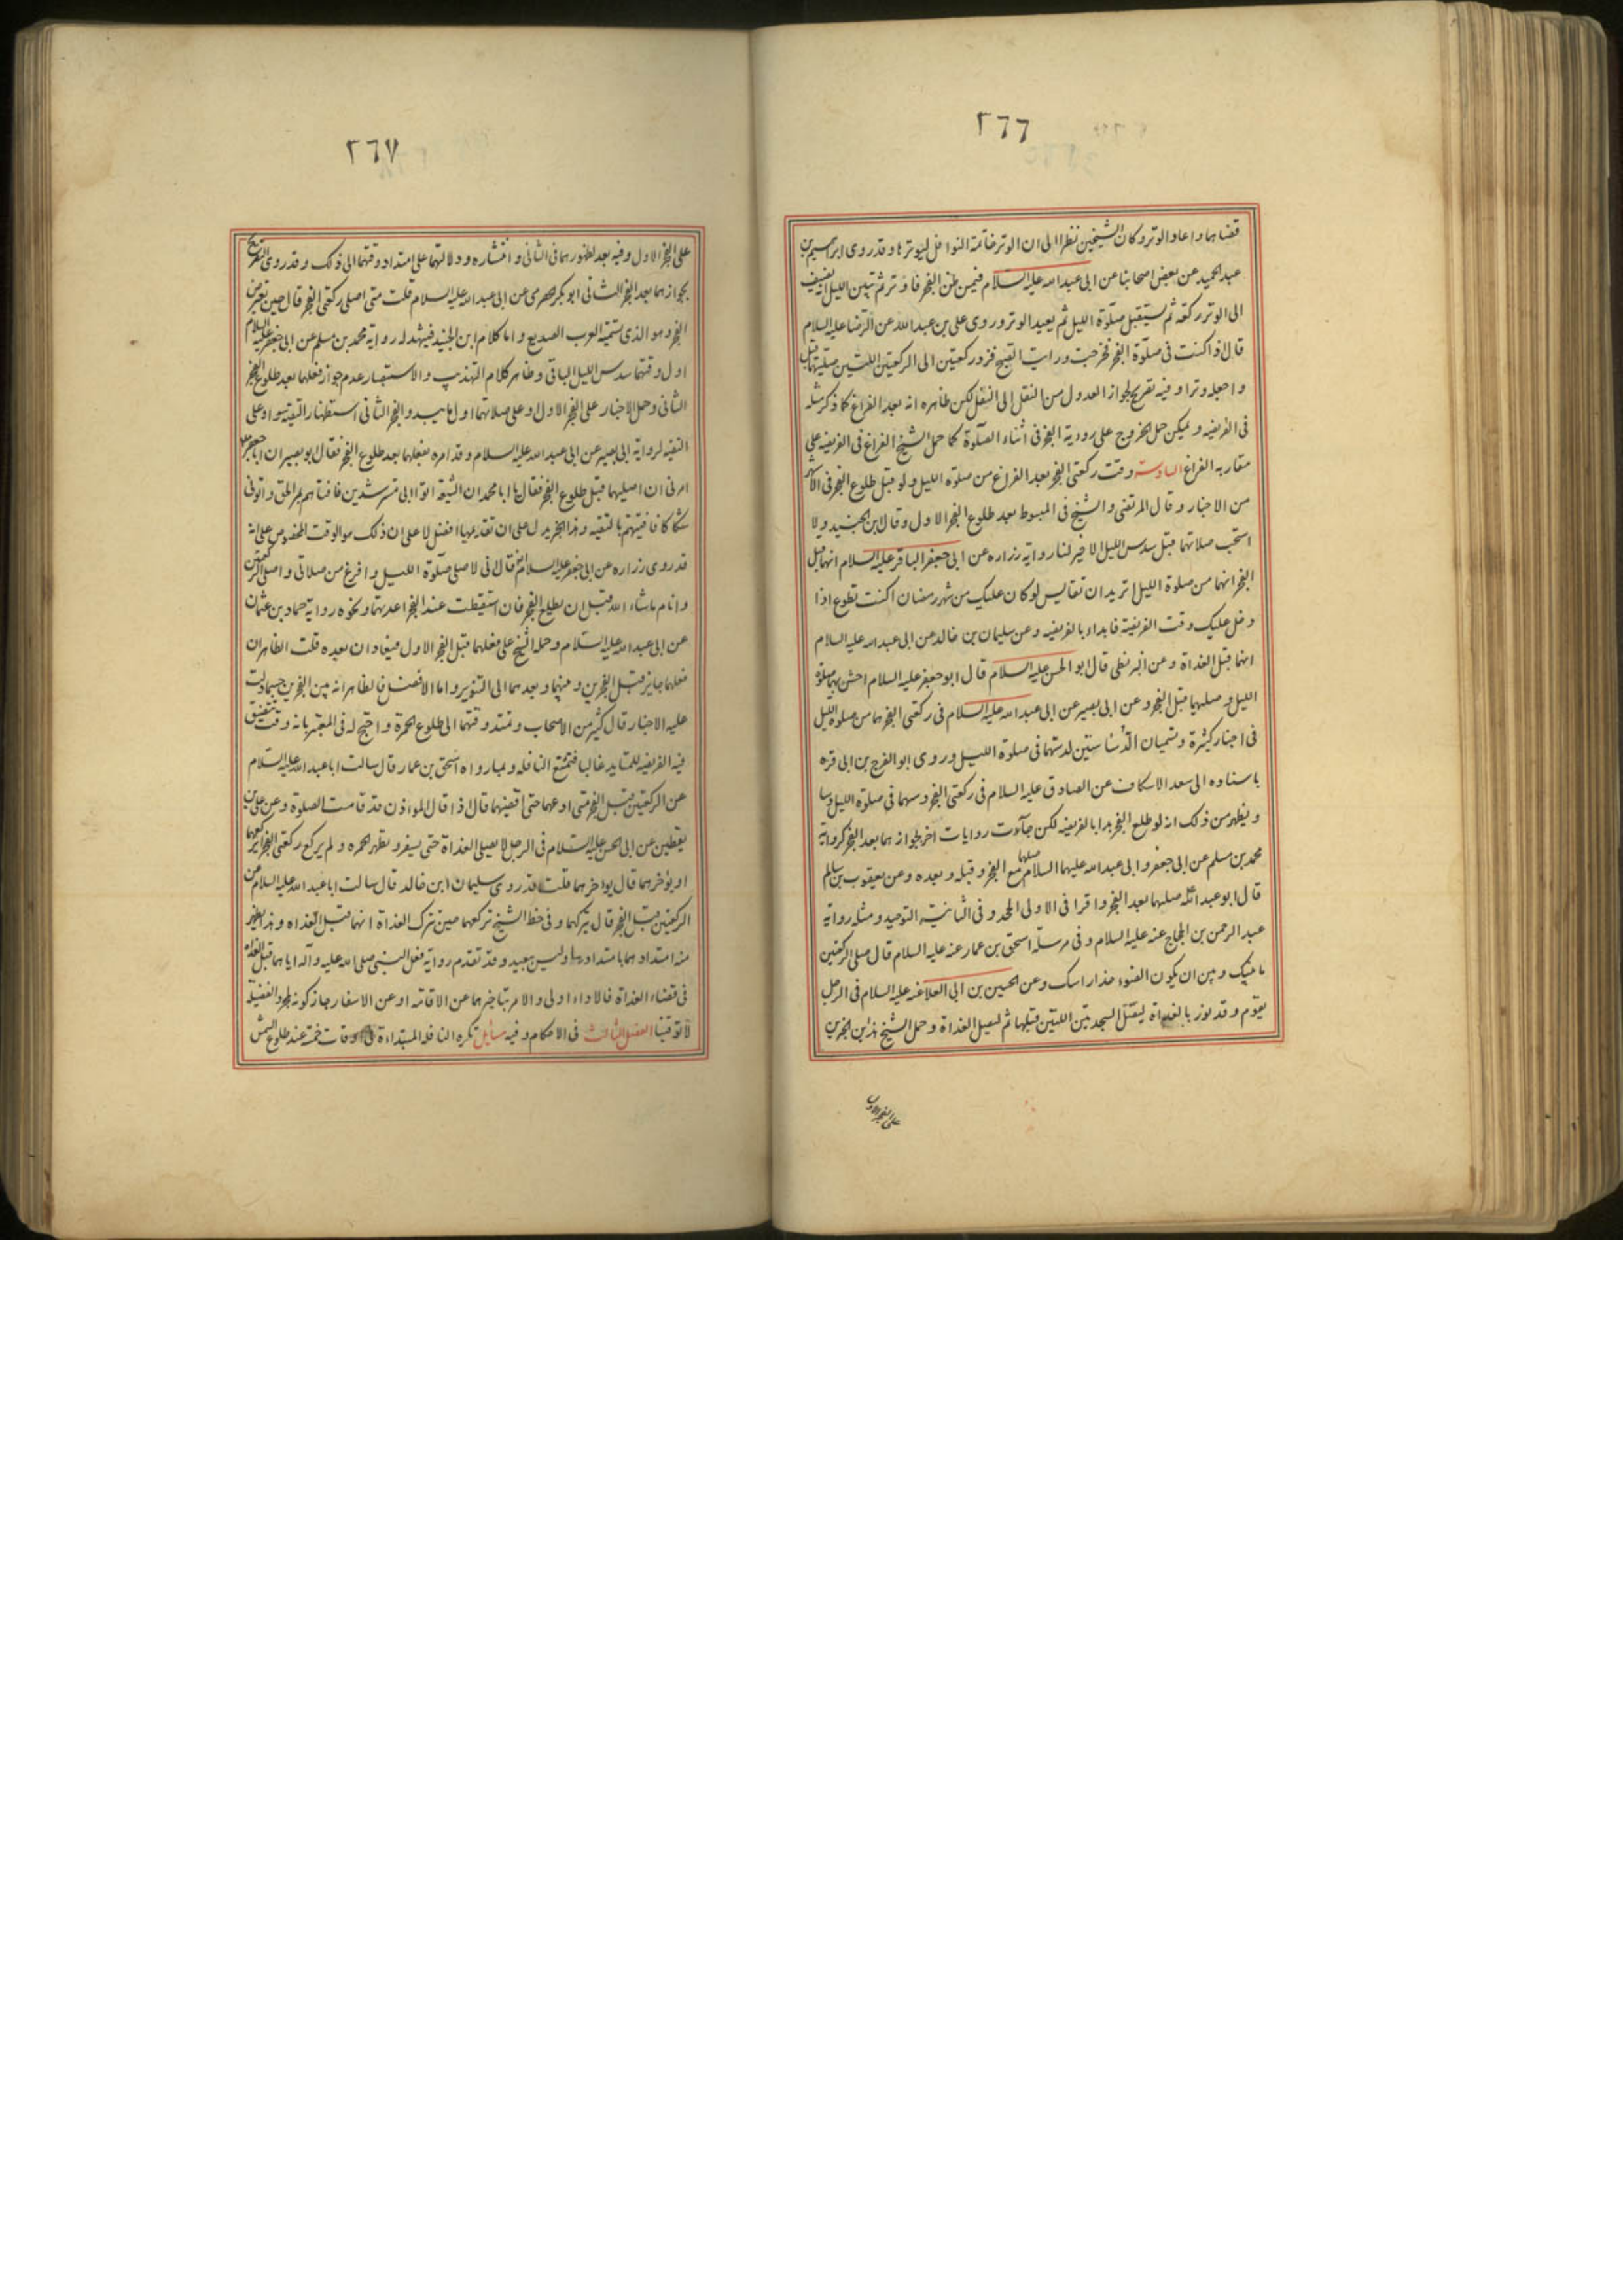 ٢٦٦
قضاهما واعاد الوتر وكان الشيخين نظرا الى ان الوتر خاتمة النوافل ليوترها وقد روى ابرهيم بن
عبد الحميد عن بعض اصحابنا عن ابى عبد الله عليه السلام فيمن ظن الفجر فاوتر ثم تبين الليل يضيف
الى الوتر ركعة ثم يستقبل صلوة الليل ثم يعيد الوتر وروى على بن عبد الله عن الرضا عليه السلام
قال اذا كنت فى صلوة الفجر فخرجت ورايت الصبح فزد ركعتين الى الركعتين اللتين صليتهما قبل
واجعله وترا وفيه تصريح بجواز العدول من النفل الى النفل لكن ظاهره انه بعد الفراغ كما ذكر مثله
فى الفريضه ويمكن حمل الخروج على روية الفجر فى اثناء الصلوة كما حمل الشيخ الفراغ فى الفريضه على
مقاربه الفراغ السادسة وقت ركعتى الفجر بعد الفراغ من صلوة الليل ولو قبل طلوع الفجر فى الاشهر
من الاخبار وقال المرتضى والشيخ فى المبسوط بعد طلوع الفجر الاول وقال ابن الجنيد ولا
استحب صلاتهما قبل سدس الليل الاخير لنا رواية زراره عن ابى جعفر الباقر عليه السلام انهما قبل
الفجر انهما من صلوة الليل اتريد ان تقايس لو كان عليك من شهر رمضان اكنت تطوع اذا
دخل عليك وقت الفريضة فابداء بالفريضه وعن سليمان بن خالد عن ابى عبد الله عليه السلام
انهما قبل الغداة وعن البزنطى قال ابو الحسن عليه السلام قال ابو جعفر عليه السلام احش بهما صلوة
الليل وصليهما قبل الفجر وعن ابى بصير عن ابى عبد الله عليه السلام فى ركعتى الفجر هما من صلوة الليل
فى اخبار كثيرة وتسميان الدساستين لدسهما فى صلوة الليل وروى ابو الفرج بن ابى قره
باسناده الى سعد الاسكاف عن الصادق عليه السلام فى ركعتى الفجر وسهما فى صلوة الليل دسا
ويظهر من ذلك انه لو طلع الفجر بدا بالفريضه لكن جآءت روايات اخر بجوازهما بعد الفجر كرواية
محمد بن مسلم عن ابى جعفر وابى عبد الله عليهما السلام صلهما مع الفجر وقبله وبعده وعن يعقوب بن سالم
قال ابو عبد الله صليهما بعد الفجر واقرا فى الاولى الجحد وفى الثانية التوحيد ومثله رواية
عبد الرحمن بن الحجاج عنه عليه السلام وفى مرسلة اسحق بن عمار عنه عليه السلام قال صلى الركعتين
ما بينك وبين ان يكون الضوء حذا راسك وعن الحسين بن ابى العلا عنه عليه السلام فى الرجل
يقوم وقد نور بالغداة ليصل السجدتين اللتين قبلها ثم ليصل الغداة وحمل الشيخ هذين الخبرين
على الفجر الاول
٢٦٧
على الفجر الاول وفيه بعد لظهورهما فى الثانى وانتشاره ودلالتهما على امتداد وقتهما الى ذلك وقد روى التصريح
بجوازهما بعد الفجر الثانى ابو بكر الحضرمى عن ابى عبد الله عليه السلام قلت متى اصلى ركعتى الفجر قال حين يعترض
الفجر وهو الذى تسميه العرب الصديع واما كلام ابن الجنيد فيشهد له رواية محمد بن مسلم عن ابى جعفر عليه السلام
اول وقتهما سدس الليل الباقى وظاهر كلام التهذيب والاستبصار عدم جواز فعلهما بعد طلوع الفجر
الثانى وحمل الاخبار على الفجر الاول وعلى صلاتهما اول ما يبدو الفجر الثانى استظهارا لتيقنه او على
التقيه لرواية ابى بصير عن ابى عبد الله عليه السلام وقد امره بفعلهما بعد طلوع الفجر فقال ابو بصير ان ابا جعفر
امرنى ان اصليهما قبل طلوع الفجر فقال يا ابا محمد ان الشيعة اتوا ابى مسترشدين فافتاهم بمر الحق واتونى
شكاكا فافتيتهم بالتقيه وهذا الخبر يدل على ان تقديمهما افضل لا على ان ذلك هو الوقت المخصوص على انه
قد روى زراره عن ابى جعفر عليه السلام انه قال انى لاصلى صلوة الليل وافرغ من صلاتى واصلى الركعتين
وانام ماشاء الله قبل ان يطلع الفجر فان استيقظت عند الفجر اعدتهما ونحوه رواية حماد بن عثمان
عن ابى عبد الله عليه السلام وحمله الشيخ على فعلهما قبل الفجر الاول فيعادان بعده قلت الظاهر ان
فعلهما جايز قبل الفجرين وبينهما وبعدهما الى التنوير واما الافضل فالظاهر انه بين الفجرين حسبما دلت
عليه الاخبار قال كثير من الاصحاب وتمتد وقتهما الى طلوع الحمرة واحتج له فى المعتبر بانه وقت تتضيق
فيه الفريضه للمتايد غالبا فتمتع النافله وبما رواه اسحق بن عمار قال سالت ابا عبد الله عليه السلام
عن الركعتين قبل الفجر متى ادعهما حتى اقضيهما قال اذا قال الموذن قد قامت الصلوة وعن على بن
يقطين عن ابى الحسن عليه السلام فى الرجل لا يصلى الغداة حتى يسفر وتظهر الحمره ولم يركع ركعتى الفجر ايركعهما
او يؤخرهما قال يواخرهما قلت قد روى سليمان ابن خالد قال سالت ابا عبد الله عليه السلام عن
الركعتين قبل الفجر قال تتركهما وفى خط الشيخ تركعهما حين تترك الغداة انهما قبل الغداه وهذا يظهر
منه امتدادهما بامتدادها وليس ببعيد وقد تقدم رواية فعل النبى صلى الله عليه وآله اياهما قبل الغداة
فى قضاء الغداة فالاداء اولى والامر بتاخيرهما عن الاقامه او عن الاسفار جاز كونه لمجرد الفضيلة
لا توقيتا الفصل الثالث فى الاحكام وفيه مسايل تكره النافلة المبتداءة فى اوقات خمسة عند طلوع الشمس